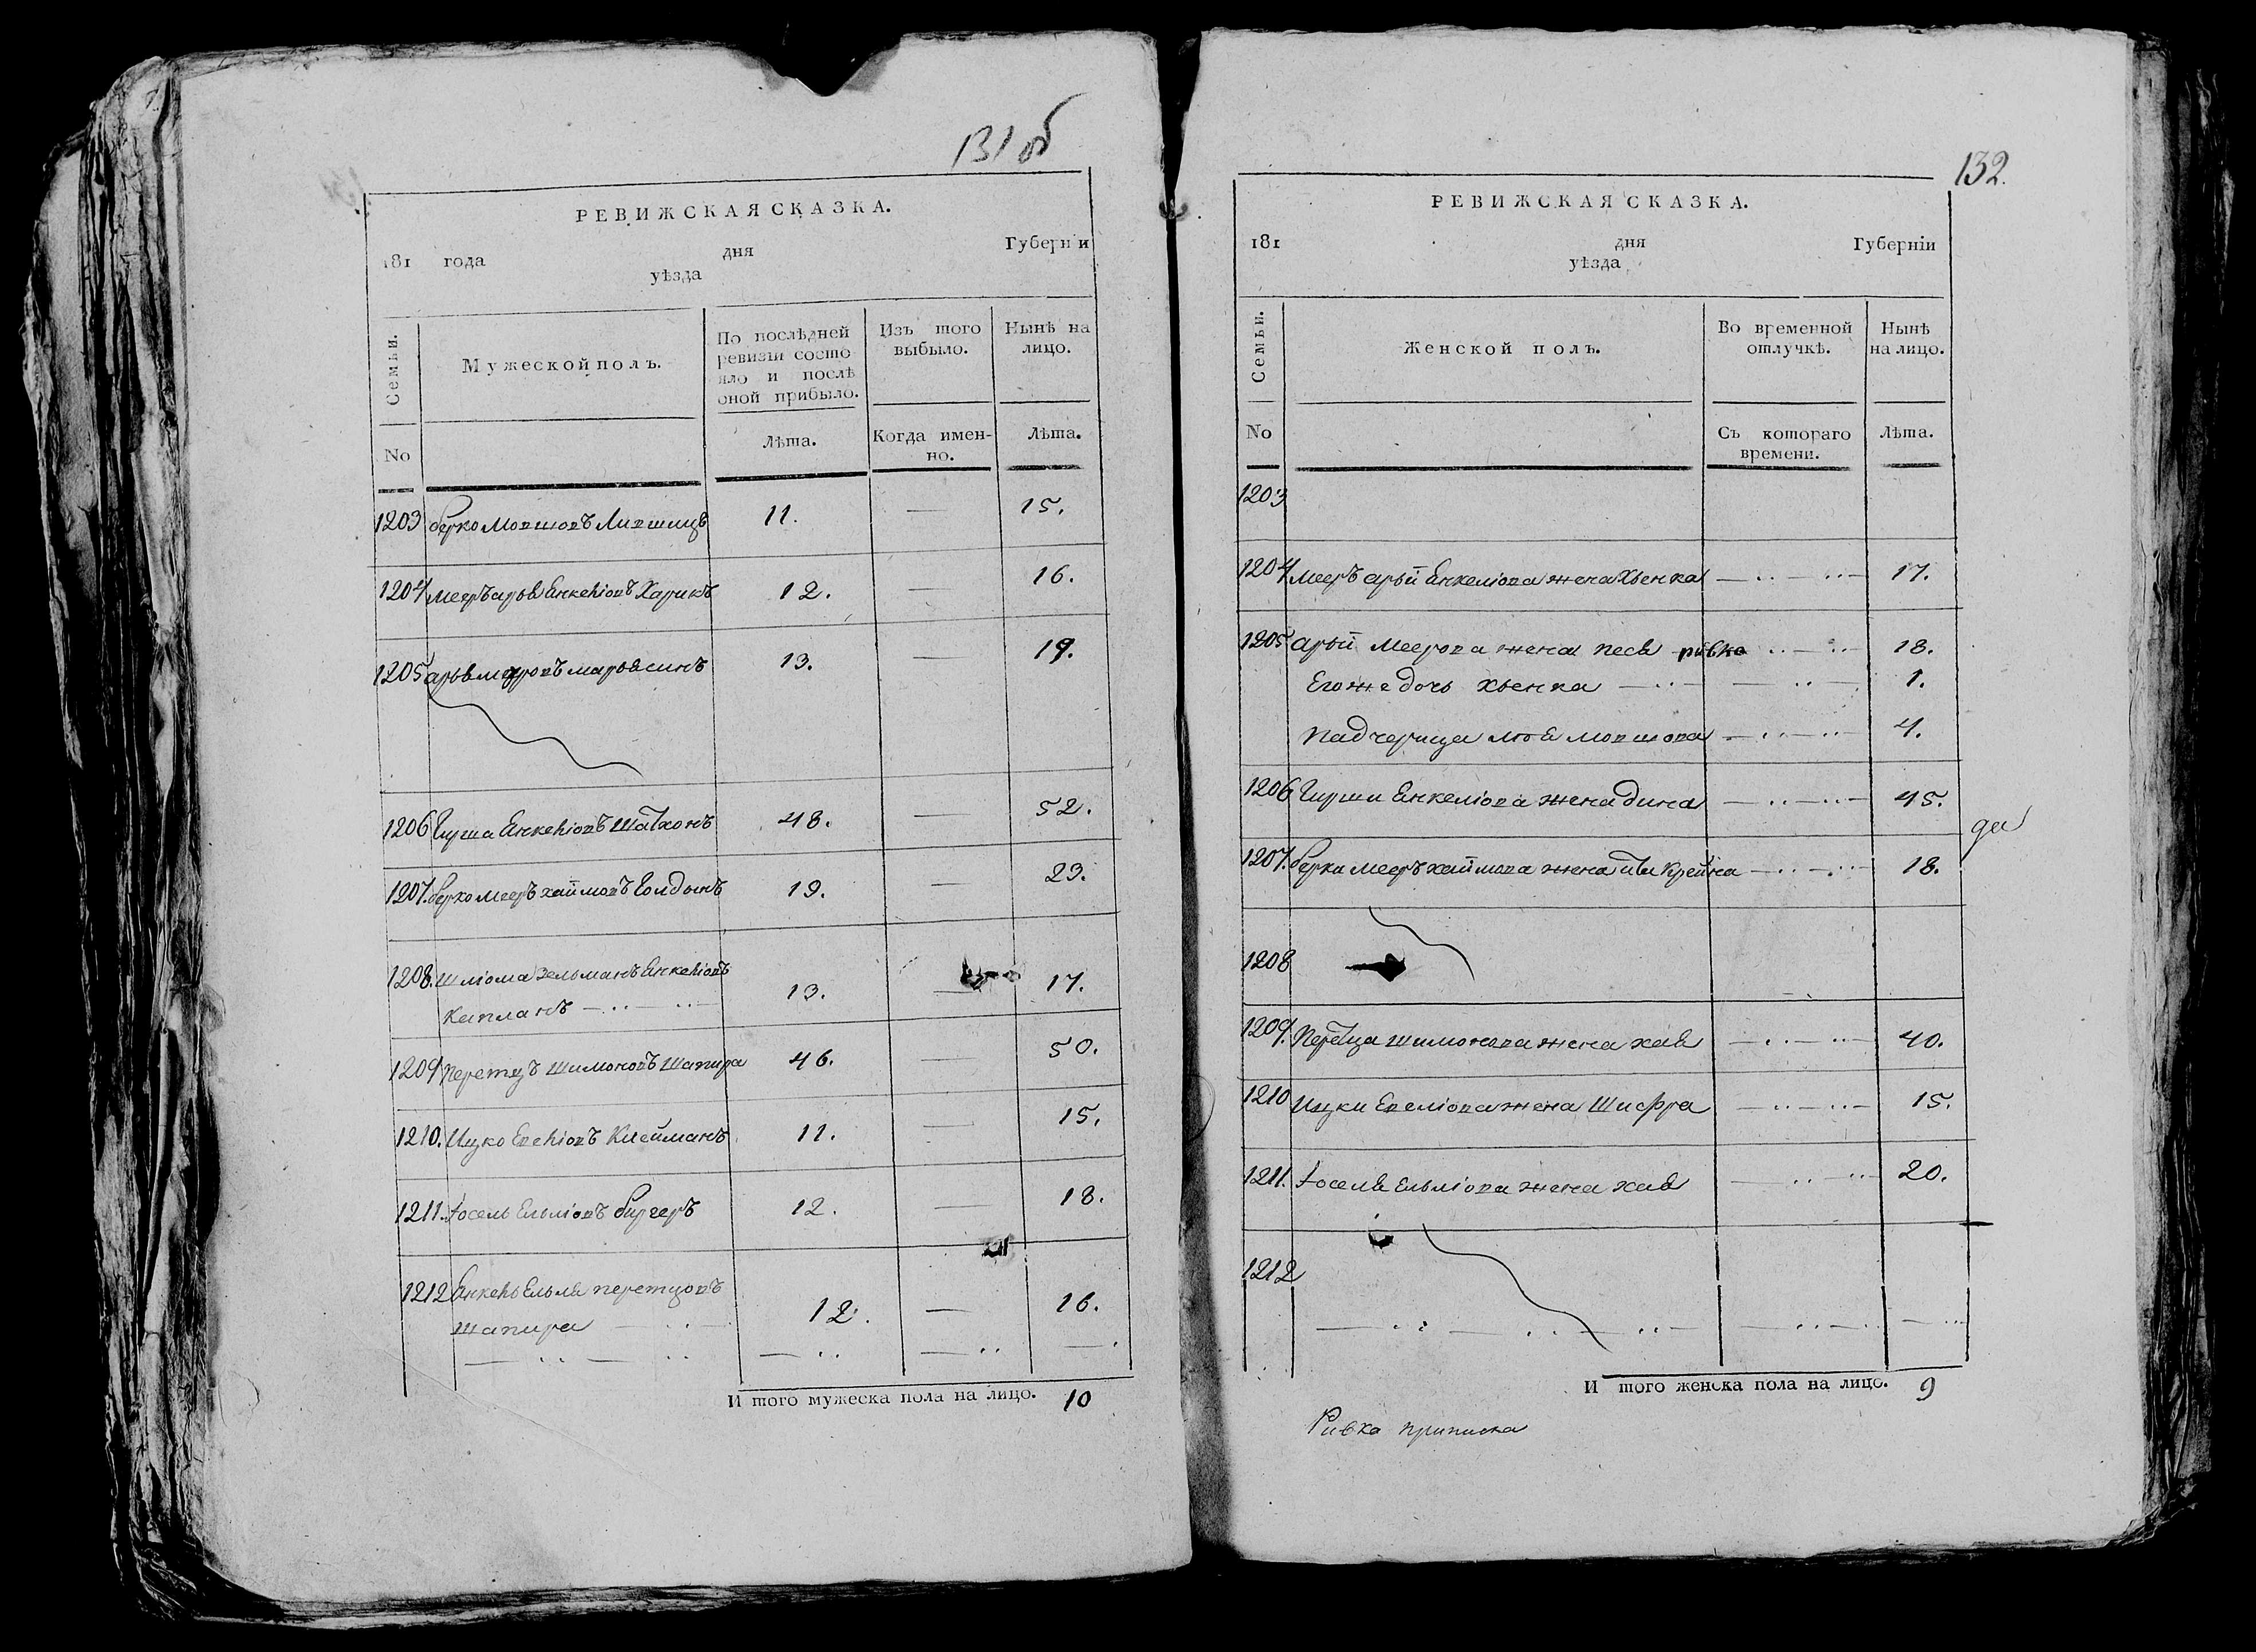 131 об
РЕВИЖСКАЯ СКАЗКА.
181 года дня Губерніи
уѣзда
Семьи.
Мужеской полъ.
По послѣдней
ревизіи состо
яло и послѣ
оной прибыло.
Изъ того
выбыло.
Нынѣ на
лицо.
No
Лѣта.
Когда имен-
но.
Лѣта.
1203 берко Мовшовъ Лившицъ 11. — 15.
1204 мееръ арье Янкеліовъ Харикъ 12. — 16.
1205 арья мееровъ марьясинъ 13. — 19.
1206 Гирша Янкеліовъ 48. — 52.
1207. берко мееръ хаймовъ Голдинъ 19. — 23.
1208. шліома зельманъ Янкеліовъ
капланъ 13. — 17.
1209 перетцъ шимоновъ шапира 46. — 50.
1210. Ицко Евеліовъ Клейманъ 11. — 15.
1211. Іосель Ельліовъ бургеръ 12. — 18.
1212 Янкель Ельля перетцовъ
шапира 12. — 16.
И того мужеска пола на лицо. 10
132.
РЕВИЖСКАЯ СКАЗКА.
181 дня Губерніи
уѣзда
Семьи.
Женской полъ.
Во временной
отлучкѣ.
Нынѣ
на лицо.
No
Съ котораго
времени.
Лѣта.
1203
1204 мееръ арьи Янкеліова жена Хьенка 17.
1205 арьи меерова жена песя ривка 18.
Егоже дочь хьенка 1.
падчерица мовшова 4.
1206 Гирши Янкеліова жена дина 45.
1207. берки мееръ хаймова жена крейна 18.
да
1208
1209. перетца шимонова жена хая 40.
1210 Ицки Евеліова жена Шифра 15.
1211. Іоселя Ельліова жена хая 20.
1212
И того женска пола на лицо. 9
Ривка приписка